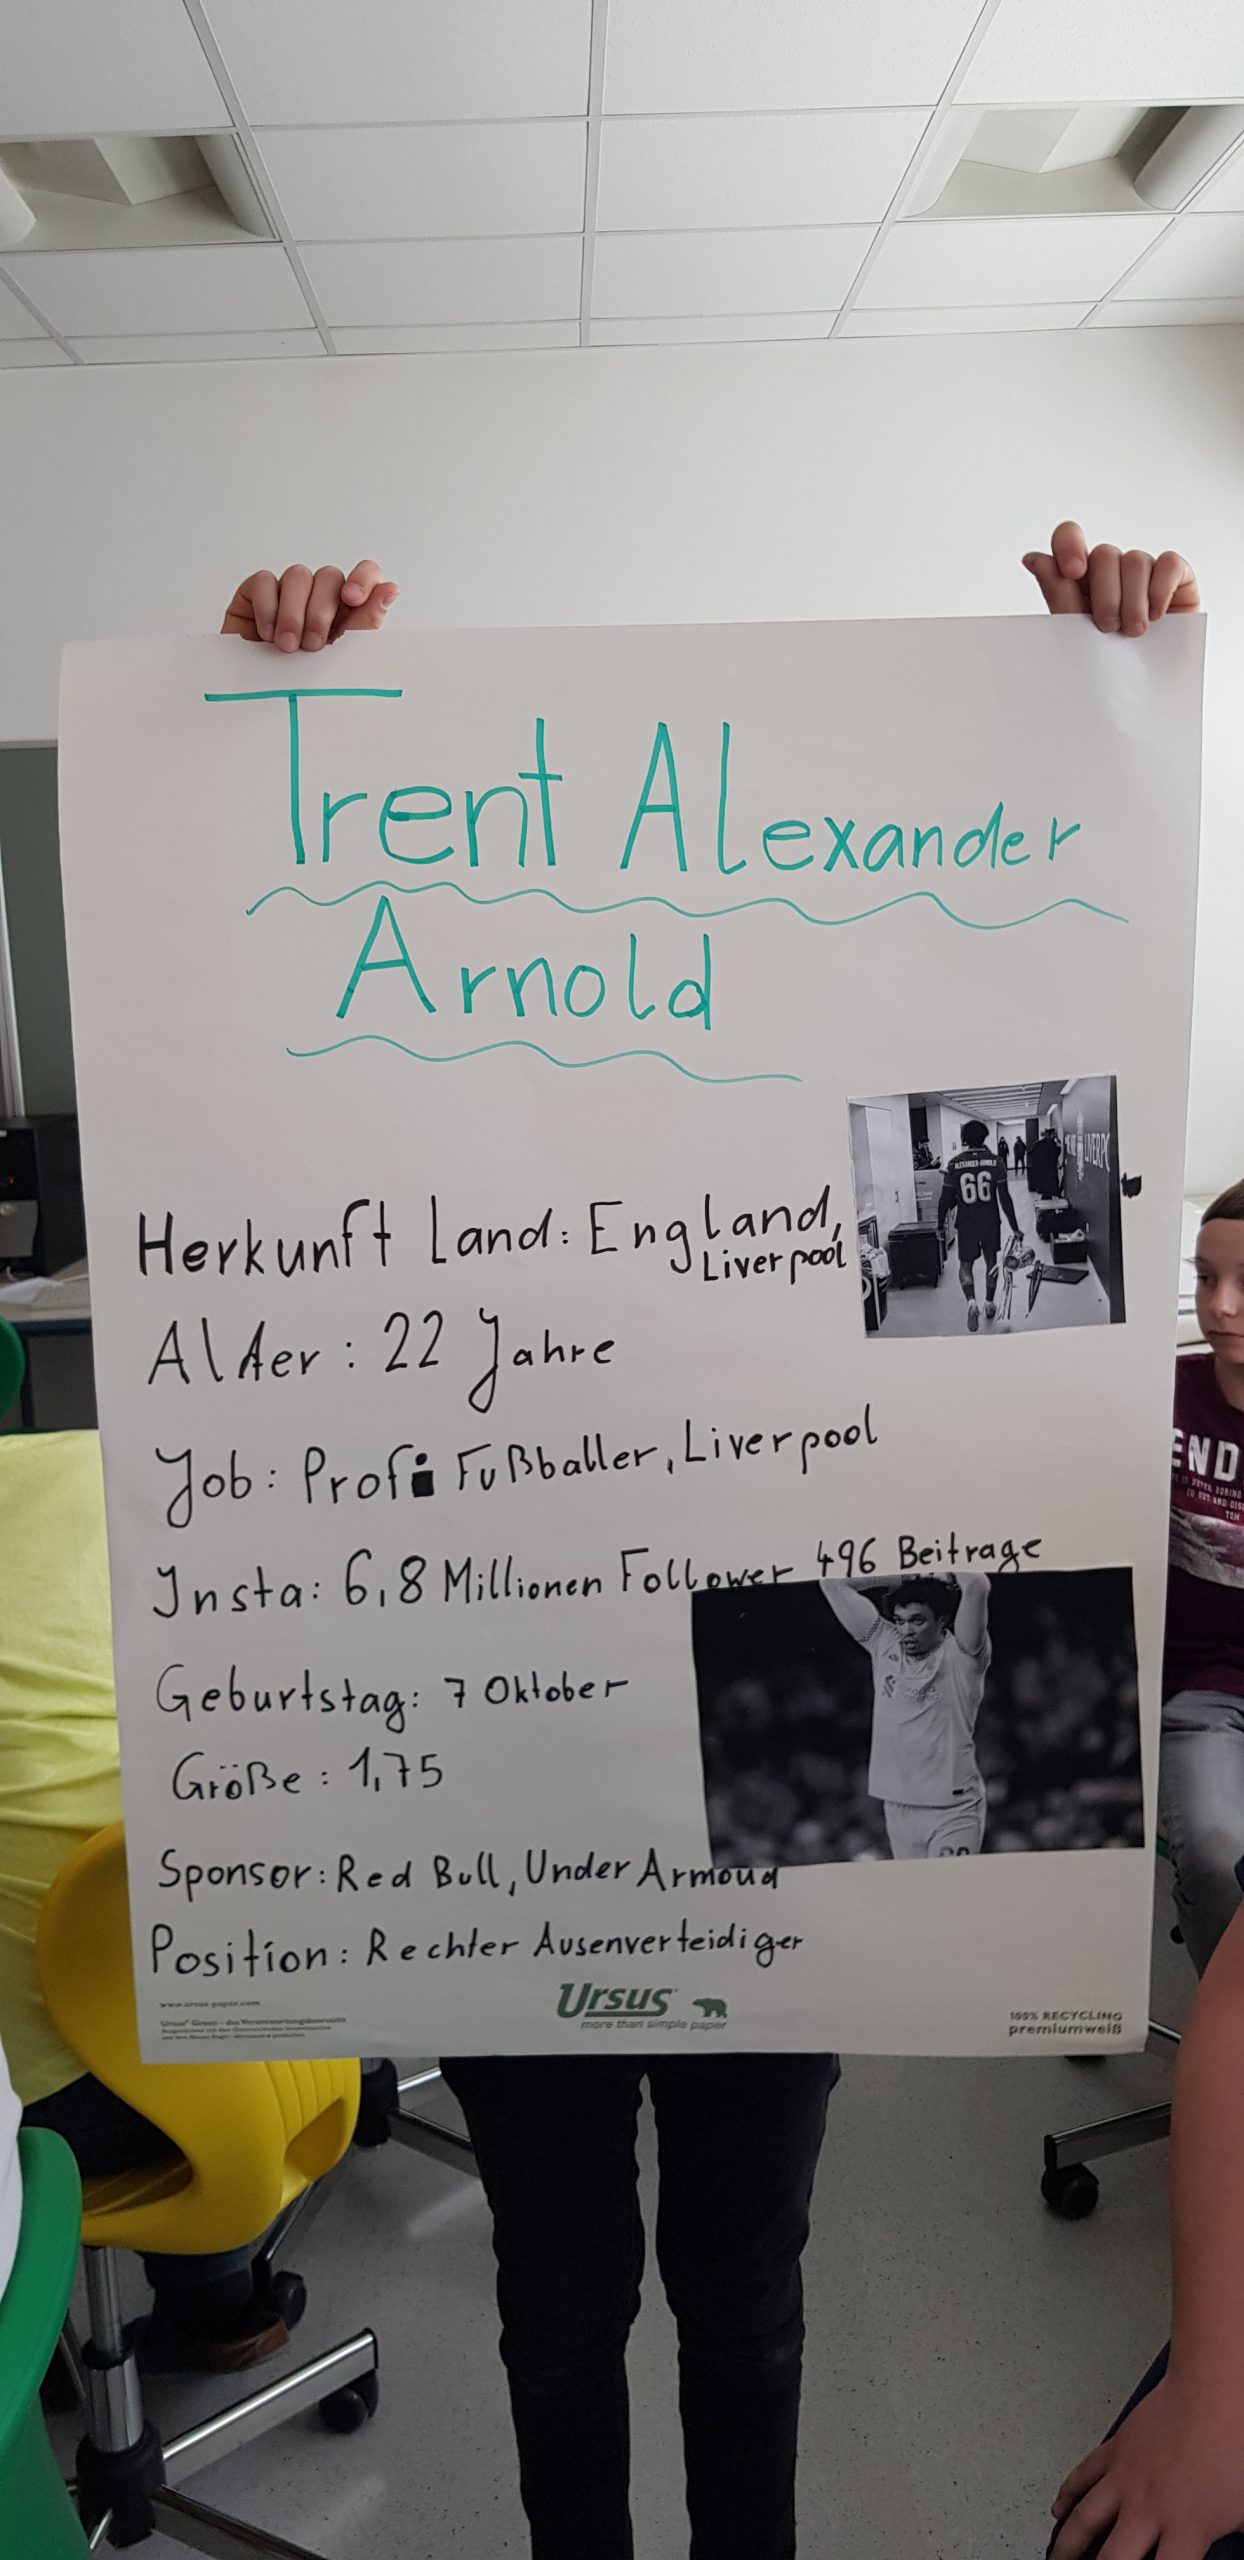 Trent Alexander
Arnold
ALEXANDER-ARNOLD
66
LIVERPO
Herkunft Land: England,
Liverpool
Alter: 22 Jahre
Job: Profi Fußballer, Liverpool
Insta: 6,8 Millionen Follower 496 Beitrage
Geburtstag: 7 Oktober
Größe: 1,75
Sponsor: Red Bull, Under Armoud
Position: Rechter Ausenverteidiger
www.ursus-paper.com
Ursus® Green - das Verantwortungsbewusste
Ursus
more than simple paper
100% RECYCLING
premiumweiß
END